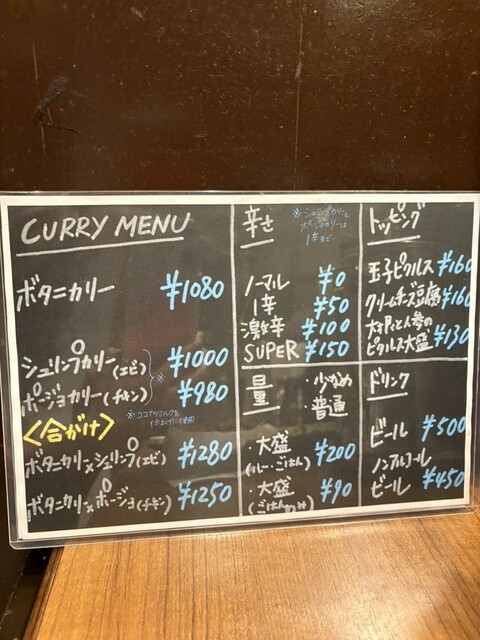 CURRY MENU
ボタニカリー ¥1080
シュリンプカリー(エビ) ¥1000
ポージョカリー(チキン) ¥980
※
※ココナツミルクを
仕上げに使用
<合がけ>
ボタニカリ×シュリンプ(エビ) ¥1280
ボタニカリ×ポージョ(チキン) ¥1250
辛さ
※シュリンプカリーと
ポージョカリーは
1辛まで
ノーマル ¥0
1辛 ¥50
激辛 ¥100
SUPER ¥150
トッピング
玉子ピクルス ¥160
クリームチーズ豆腐 ¥160
大根と人参の
ピクルス大盛 ¥130
量
・少なめ
・普通
・大盛
(ルー・ごはん) ¥200
・大盛
(ごはんのみ) ¥90
ドリンク
ビール ¥500
ノンアルコール
ビール ¥450